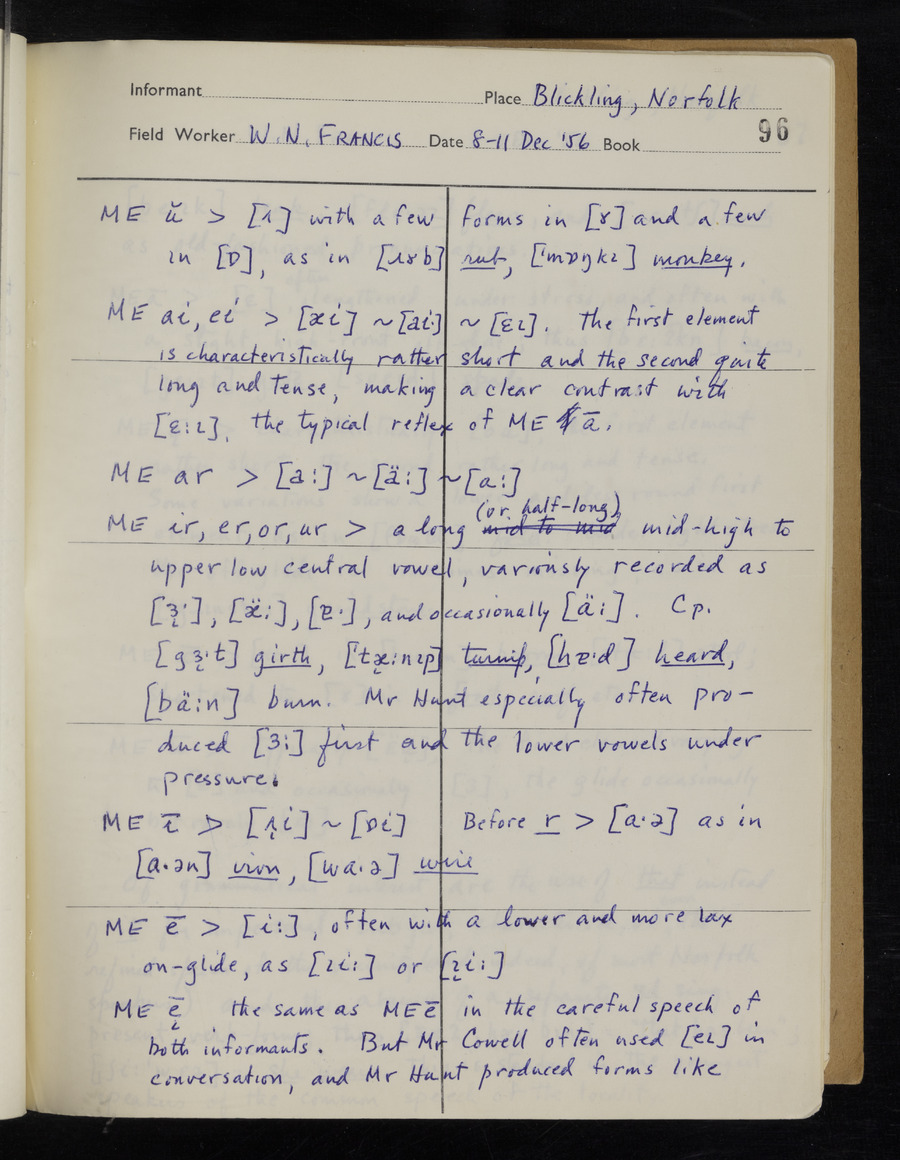 Informant Place Blickling, Norfolk
Field Worker W. N. FRANCIS Date 8-11 Dec '56 Book 96
ME ŭ > [ʌ] with a few forms in [ɤ] and a few
in [ɒ], as in [ɹɤb] rub, ['mɒŋkɪ] monkey.
ME ai, ei > [æi] ~ [ai:] ~ [ɛɪ]. The first element
is characteristically rather short and the second quite
long and tense, making a clear contrast with
[ɛ:ɪ], the typical reflex of ME ā.
ME ar > [a:] ~ [ä:] ~ [ɑ:]
(or half-long)
ME ir, er, or, ur > a long mid to mid mid-high to
upper low central vowel, variously recorded as
[ɜ̨·], [æ̈:], [ɐ·], and occasionally [ä:]. Cp.
[gɜ̨·t] girth, ['tæ̨:nɪp] turnip, [hɐ·d] heard,
[bä:n] burn. Mr Hunt especially often pro-
duced [ɜ:] first and the lower vowels under
pressure.
ME ī > [ʌ̨i] ~ [ɒi] Before r > [ɑ·ə] as in
[ɑ·ən] iron, [wɑ·ə] wire
ME ē > [i:], often with a lower and more lax
on-glide, as [ɪi:] or [ɪ̨i:]
ME ę̄ the same as ME ē in the careful speech of
both informants. But Mr Cowell often used [eɪ] in
conversation, and Mr Hunt produced forms like